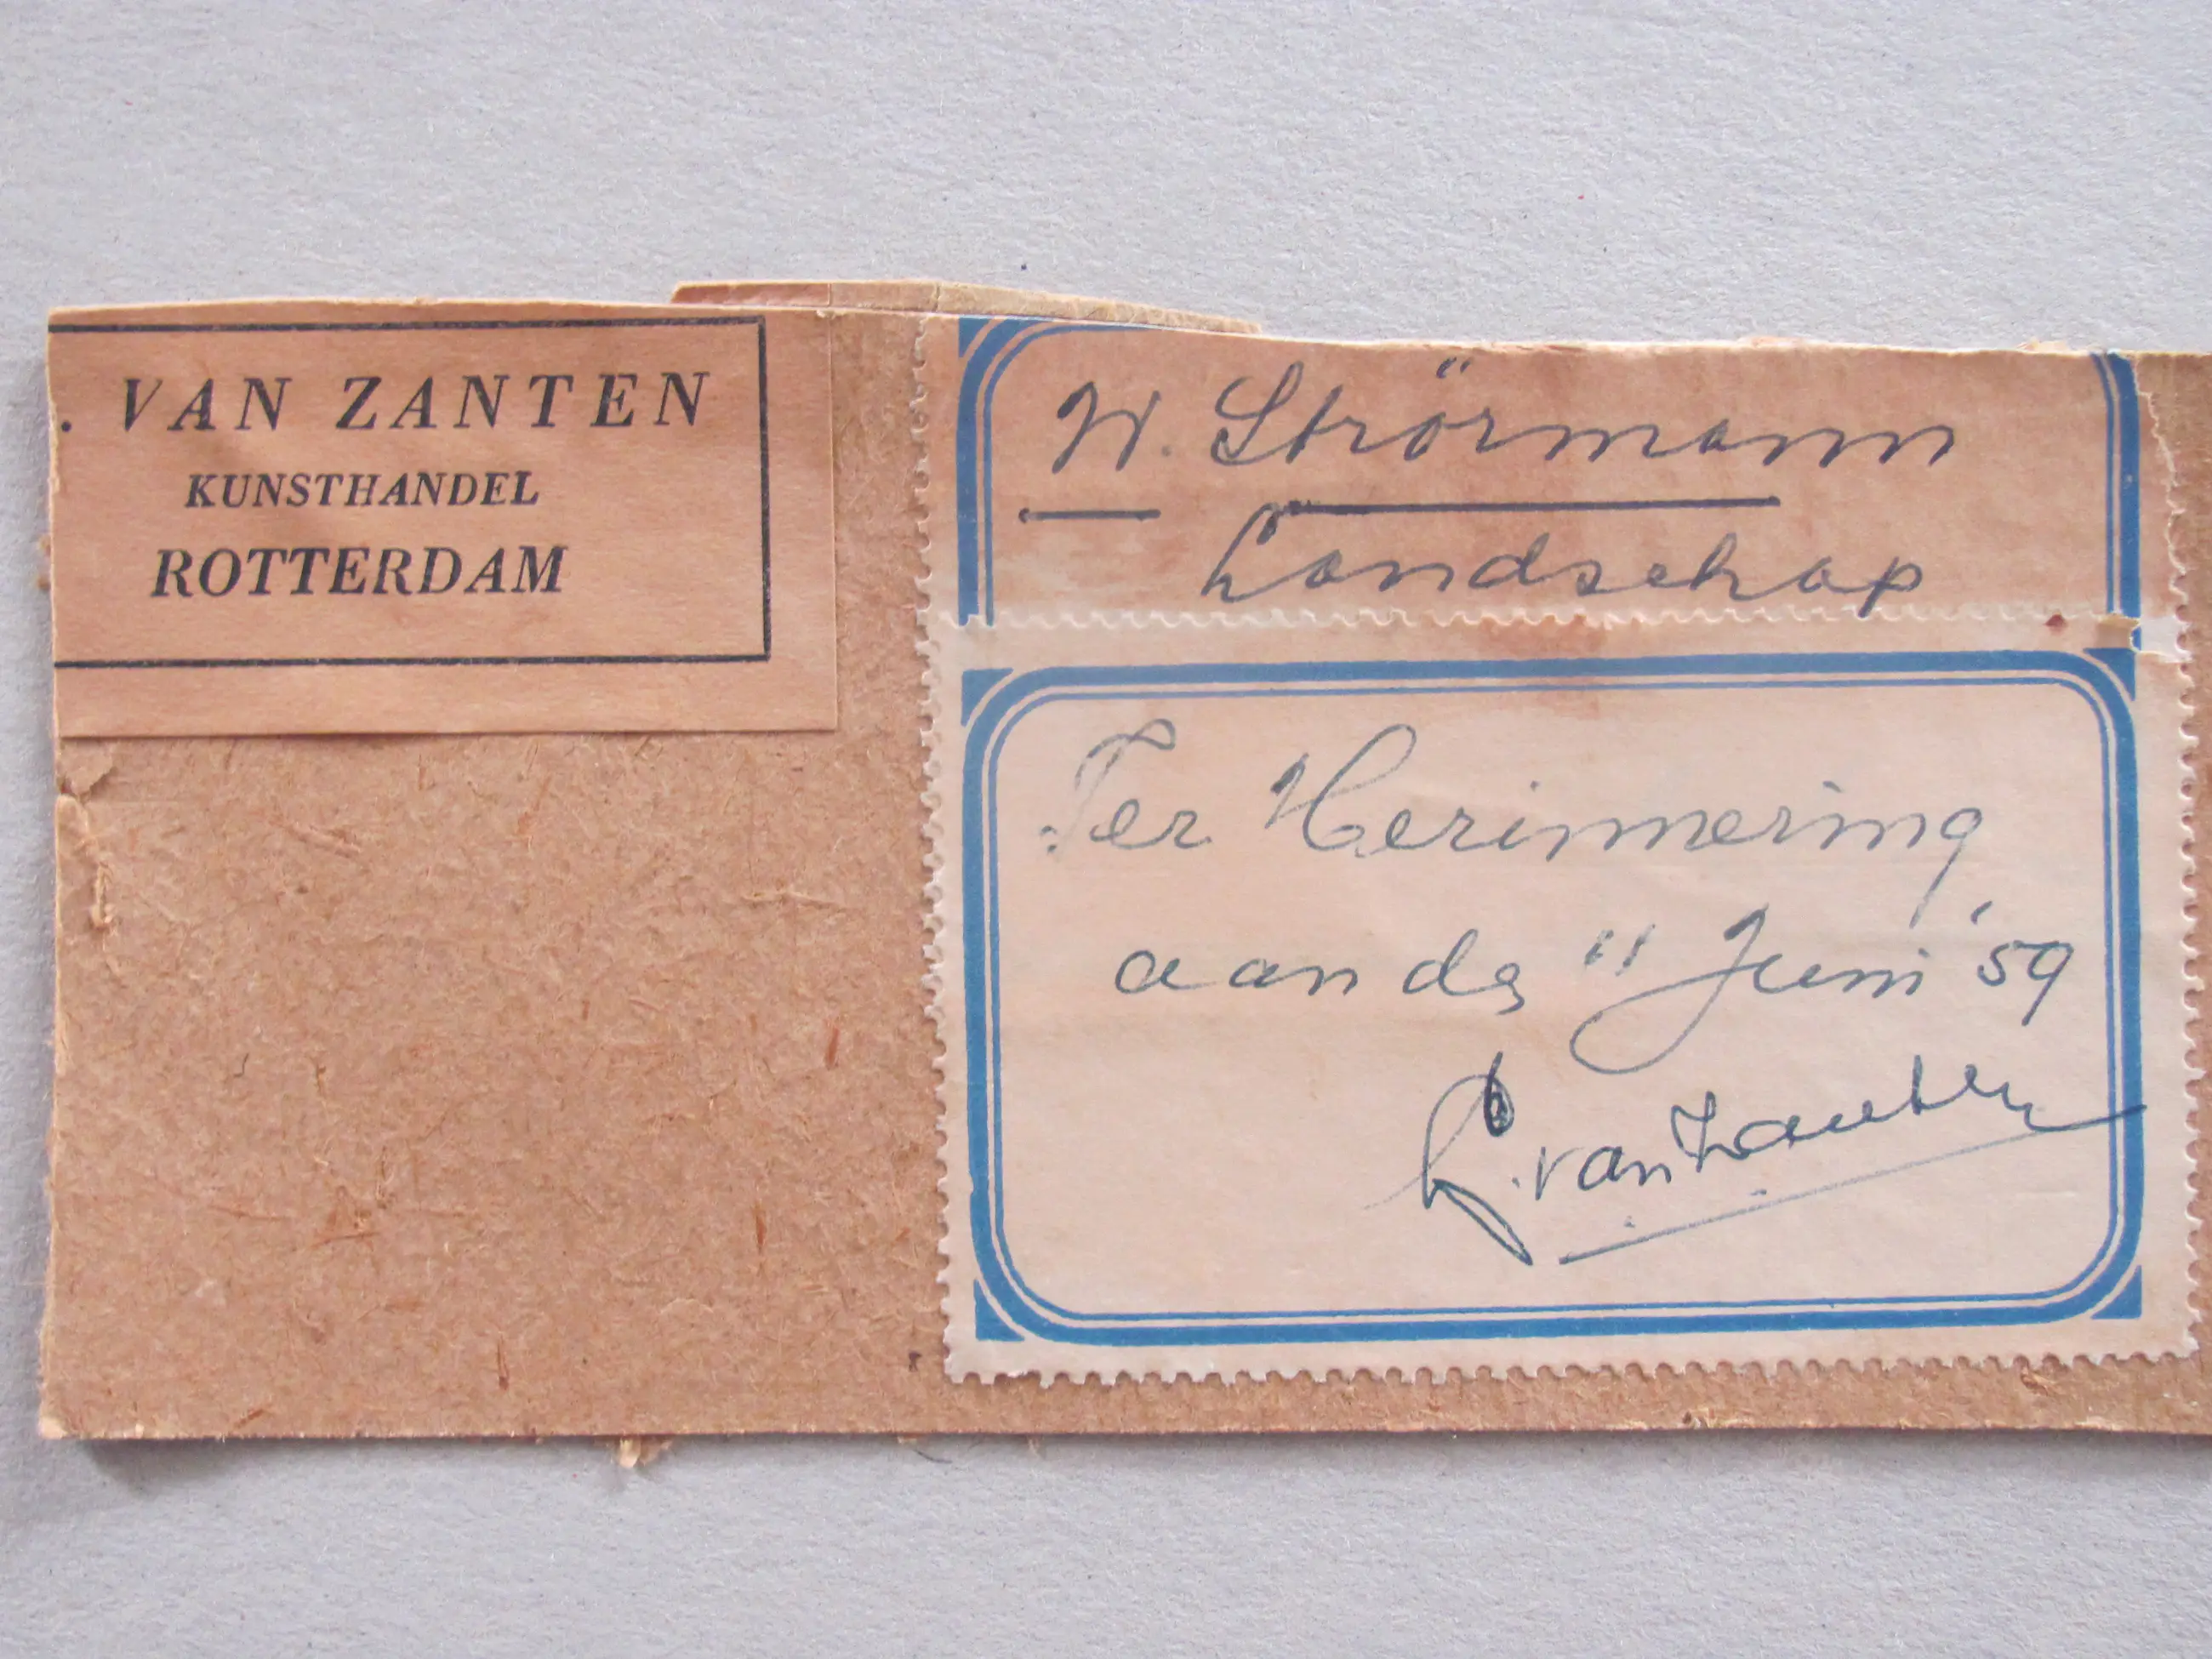 . VAN ZANTEN
KUNSTHANDEL
ROTTERDAM
W. Störmann
Landschap
Ter Herinnering
aan de " Juni '59
van Zanten